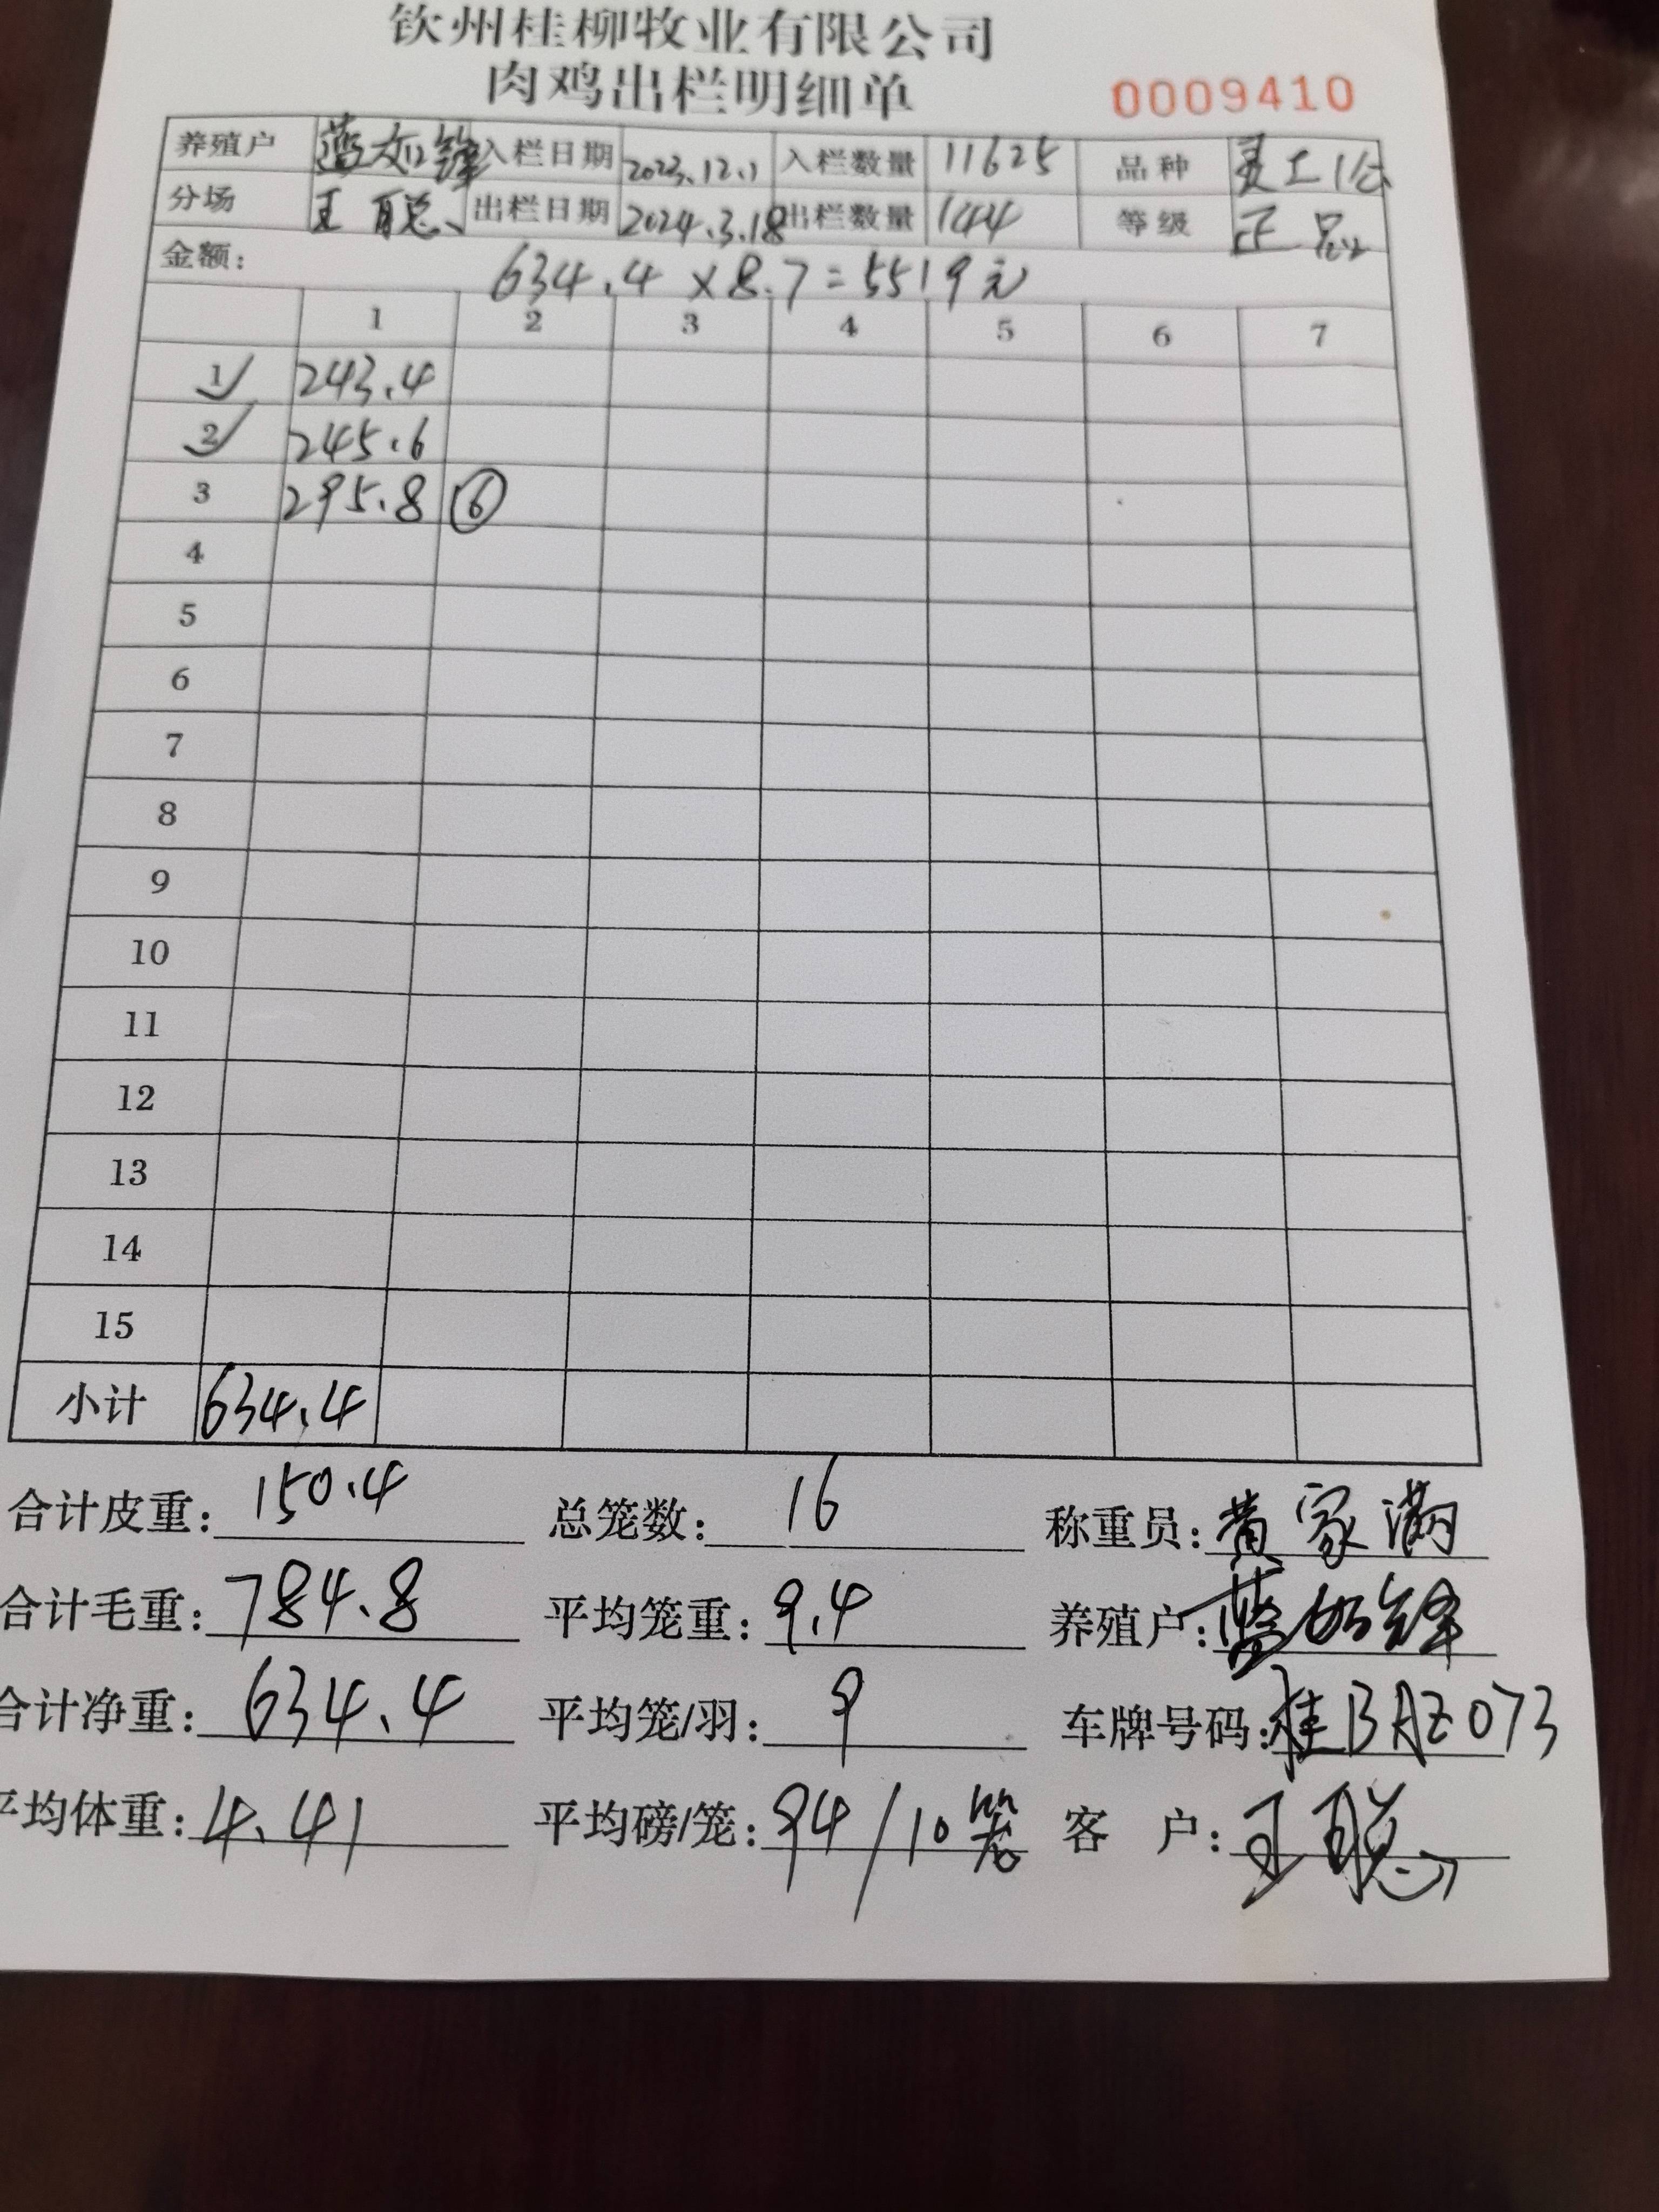 钦州桂柳牧业有限公司
肉鸡出栏明细单 0009410
养殖户 蓝如锋 入栏日期 2023.12.1 入栏数量 11625 品种
分场 王聪 出栏日期 2024.3.18 出栏数量 144 等级 正品
金额: 634.4×8.7=5519元
1 2 3 4 5 6 7
1 243.4
2 245.6
3 295.8 ⑥
4
5
6
7
8
9
10
11
12
13
14
15
小计 634.4
合计皮重: 150.4 总笼数: 16 称重员: 黄家满
合计毛重: 784.8 平均笼重: 9.4 养殖户: 蓝如锋
合计净重: 634.4 平均笼/羽: 9 车牌号码: 桂BAZ073
平均体重: 4.41 平均磅/笼: 94/10笼 客 户: 王聪